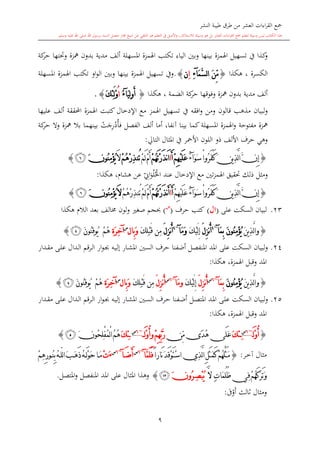 جمع القراءات العشر من طرق طيبة النشر
وكذا في تسهيل الهمزة بينها وبين الياء تكتب الهمزة المسهلة ألف مدية بدون همزة وتحتها حركة
الكسرة ، هكذا ﴿ مِّنَ ٱلسَّمَآءِ ان ﴾ .وفي تسهيل الهمزة بينها وبين الواو تكتب الهمزة المسهلة
ألف مدية بدون همزة وفوقها حركة الضمة ، هكذا ﴿ أَوۡلِيَآءُ اُوْلَٰٓئِكَ ﴾ .
ولبيان مذهب قالون ومن وافقه في تسهيل الهمز مع الإدخال كتبت الهمزة المحققة ألف عليها
همزة مفتوحة والهمزة المسهلة كما بينا آنفا، أما ألف الفصل فأُدْرِجَتْ بينهما بلا همزة ولا حركة
وهي حرف الألف ذو اللون الأحمر في المثال التالي:
﴿ إِنَّ ٱلَّذِينَ كَفَرُواْ سَوَآءٌ عَلَيۡهِمۡ ءَأَنذَرۡتَهُمۡ أَمۡ لَمۡ تُنذِرۡهُمۡ لَا يُؤۡمِنُونَ ٦ ﴾
ومثل ذلك تحقيق الهمزتين مع الإدخال عند الْحُلْوَانِيِّ عن هشام، هكذا:
﴿ إِنَّ ٱلَّذِينَ كَفَرُواْ سَوَآءٌ عَلَيۡهِمۡ ءَأَنذَرۡتَهُمۡ أَمۡ لَمۡ تُنذِرۡهُمۡ لَا يُؤۡمِنُونَ ٦ ﴾
٢٣. لبيان السكت على (ال) كتب حرف (س) بحجم صغير ولون مخالف بعد اللام هكذا
﴿ وَٱلَّذِينَ يُؤۡمِنُونَ بِمَآ أُنزِلَ إِلَيۡكَ وَمَآ أُنزِلَ مِن قَبۡلِكَ وَبِٱلۡأٓخِرَةِ هُمۡ يُوقِنُونَ ٤ ﴾
٢٤. ولبيان السكت على المد المنفصل أضفنا حرف السين المشار إليه بجوار الرقم الدال على مقدار
المد وقبل الهمزة، هكذا:
﴿ وَٱلَّذِينَ يُؤۡمِنُونَ بِمَآ أُنزِلَ إِلَيۡكَ وَمَآ أُنزِلَ مِن قَبۡلِكَ وَبِٱلۡأٓخِرَةِ هُمۡ يُوقِنُونَ ٤ ﴾
٢٥. ولبيان السكت على المد المتصل أضفنا حرف السين المشار إليه بجوار الرقم الدال على مقدار
المد وقبل الهمزة، هكذا:
﴿ أُوْلَٰٓئِكَ عَلَىٰ هُدٗى مِّن رَّبِّهِمۡ وَأُوْلَٰٓئِكَ هُمُ ٱلۡمُفۡلِحُونَ ٥ ﴾
مثال آخر: ﴿ مَثَلُهُمۡ كَمَثَلِ ٱلَّذِي ٱسۡتَوۡقَدَ نَارٗا فَلَمَّآ أَضَآءَتۡ مَا حَوۡلَهُۥ ذَهَبَ ٱللَّهُ بِنُورِهِمۡ
وَتَرَكَهُمۡ فِي ظُلُمَٰتٖ لَّا يُبۡصِرُونَ ١٧ ﴾ وهذا المثال على المد المنفصل والمتصل.
ومثال ثالث أَوَّل:
٩